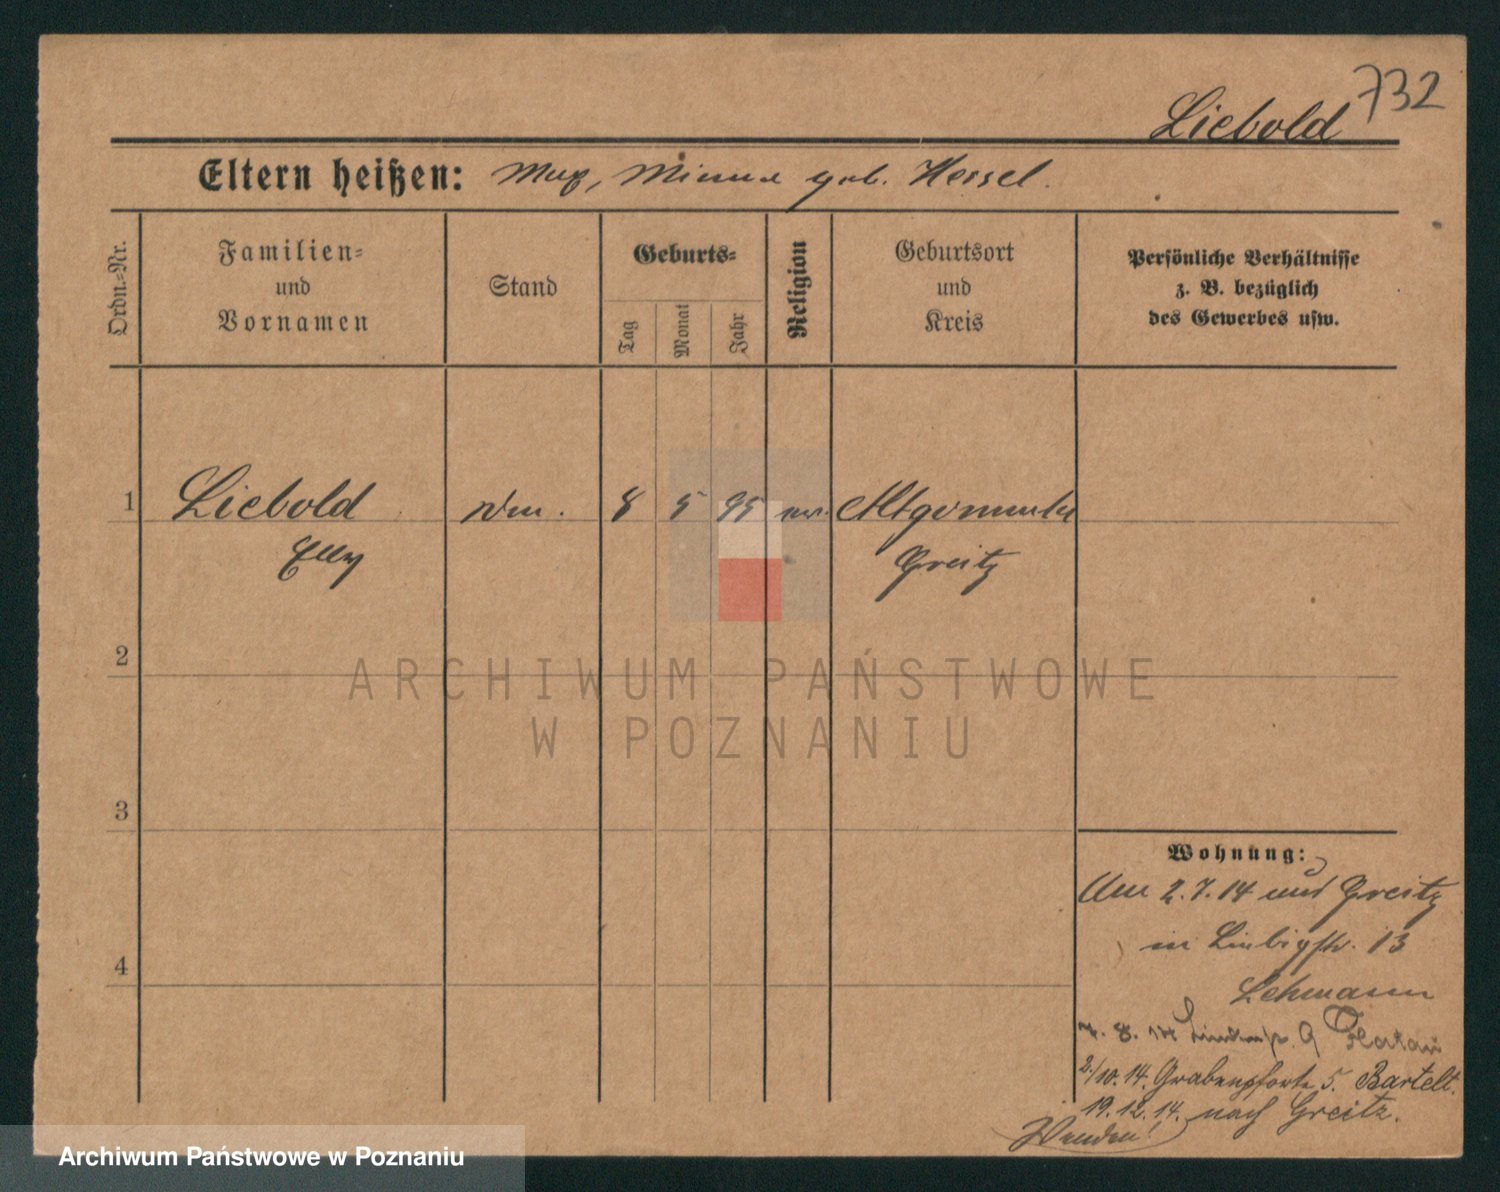 732
Liebold
Eltern heißen: Max, Minna geb. Hessel.
Ordn.=Nr.
Familien=
und
Vornamen
Stand
Geburts=
Tag
Monat
Jahr
Religion
Geburtsort
und
Kreis
Persönliche Verhältnisse
z. B. bezüglich
des Gewerbes usw.
1 Liebold 8 5 95 ev.
Elly Greitz
2
3
4
Wohnung:
Am 2.7.14 aus Greitz
in Liebigstr. 13
Lehmann
7. 8. 14 9
2/10.14. Grabenpforte 5. Bartelt.
19.12.14. nach Greitz.
Wenden!
ARCHIWUM PAŃSTWOWE
W POZNANIU
Archiwum Państwowe w Poznaniu